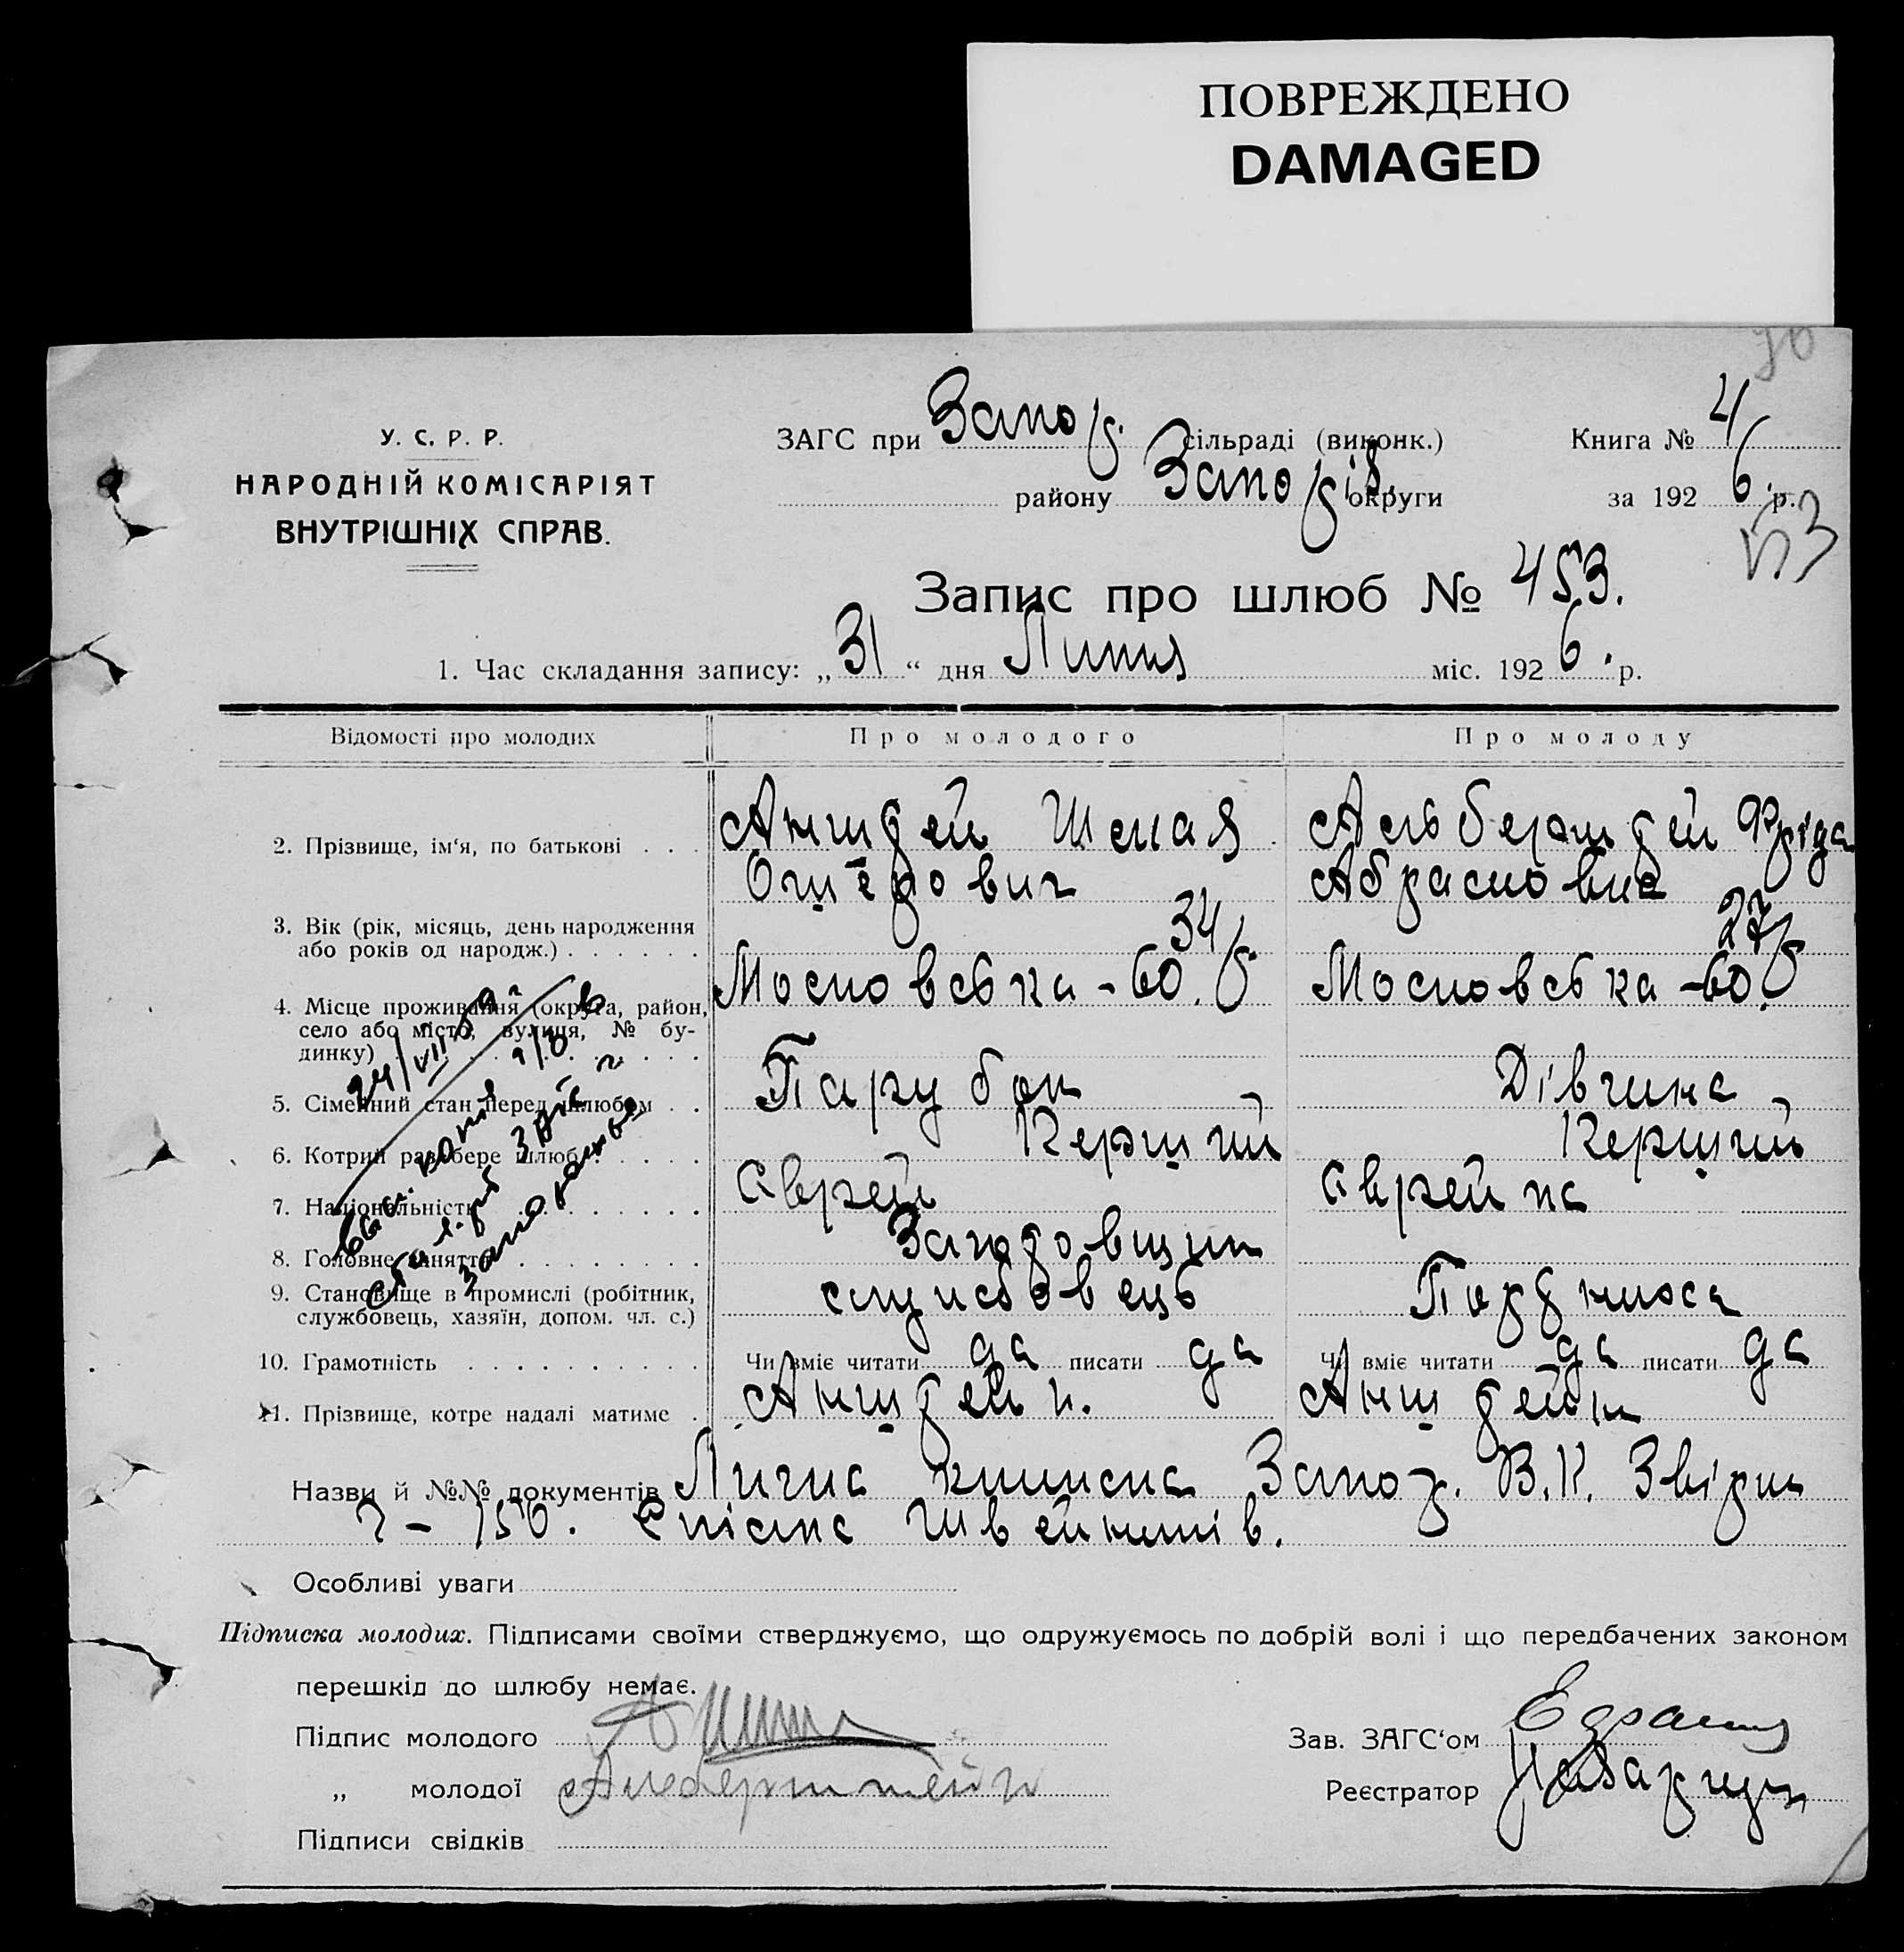 ПОВРЕЖДЕНО
DAMAGED
У. С. Р. Р.
НАРОДНІЙ КОМІСАРІЯТ
ВНУТРІШНІХ СПРАВ.
ЗАГС при Запор. сільраді (виконк.)
району Запоріз. округи
Книга № 4
за 192 6. р.
Запис про шлюб № 453.
1. Час складання запису: „ 31 “ дня Липня міс. 192 6. р.
Відомості про молодих
Про молодого
Про молоду
2. Прізвище, ім‘я, по батькові . . .
Анштейн
Ошерович
Альберштейн Фріда
Абрамовна
3. Вік (рік, місяць, день народження
або років од народж.) . . . . . .
34 р.
27 р.
4. Місце проживання (округа, район,
село або місто, вулиця, № бу-
динку)
Московська - 60.
Московська - 60.
5. Сімейний стан перед шлюбом . .
Парубок
Дівчина
6. Котрий раз бере шлюб . . . . .
Перший
Перший
7. Національність
Єврей
Єврейка
8. Головне заняття . . . . . . . .
Заготовщик
9. Становище в промислі (робітник,
службовець, хазяїн, допом. чл. с.)
службовець
10. Грамотність . . . . . . . . . .
Чи вміє читати да писати да
Чи вміє читати да писати да
11. Прізвище, котре надалі матиме .
Анштейн.
Анштейн
Назви й №№ документів Лична книжка Запор. В.К.
Спілка Швейників.
Особливі уваги
Підписка молодих. Підписами своїми стверджуємо, що одружуємось по добрій волі і що передбачених законом
перешкід до шлюбу немає.
Підпис молодого
„ молодої Альберштейн
Підписи свідків
Зав. ЗАГС‘ом
Реєстратор